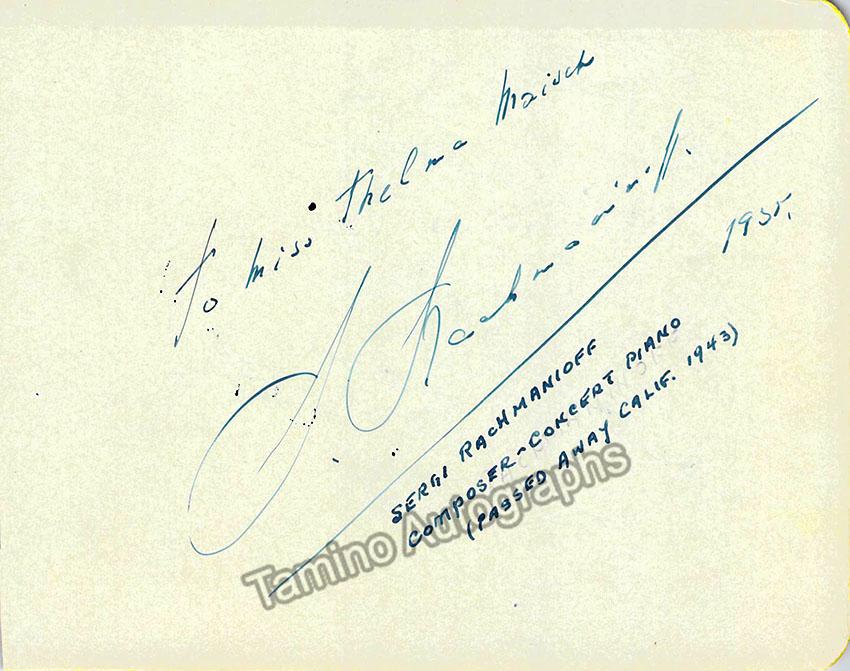 To Miss Thelma Maisch
S. Rachmaninoff.
1935.
SERGI RACHMANIOFF
COMPOSER-CONCERT PIANO
(PASSED AWAY CALIF. 1943)
Tamino Autographs